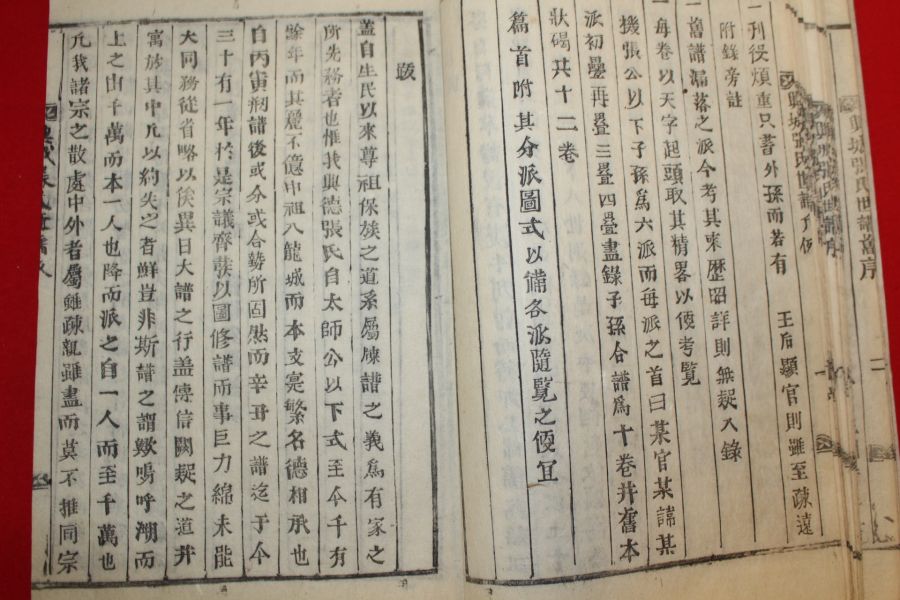 一刊役煩重只書外孫而若有 王后顯官則雖至疎遠
附錄旁註
一舊譜漏落之派今考其來歷昭詳則無疑入錄
一每卷以天字起頭取其精畧以便考覽
一機張公以下子孫爲六派而每派之首曰某官某諱某
派初疊再疊三疊四疊盡錄子孫合譜爲十卷幷舊本
狀碣共十二卷
篇首附其分派圖式以備各派隨覽之便宜
跋
蓋自生民以來尊祖保族之道系屬煉譜之義爲有家之
所先務者也惟我興德張氏自太師公以下式至今千有
餘年而其麗不億中祖八龍城而本支寔繁名德相承也
自丙寅刱譜後或分或合勢所固然而辛丑之譜迄于今
三十有一年於是宗議齊發以圖修譜而事巨力綿未能
大同務從省略以俟異日大譜之行盖傳信闕疑之道幷
寓於其中凡以約失之者鮮豈非斯譜之謂歟嗚呼溯而
上之由千萬而本一人也降而派之自一人而至千萬也
凡我諸宗之散處中外者屬雖疎親雖盡而莫不推同宗